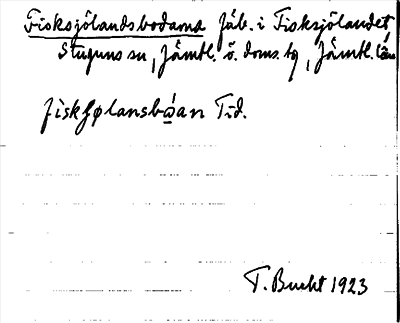 Fisksjölandsbodarna fäb. i Fisksjölandet,
Stuguns sn, Jämtl. ö. doms. tg, Jämtl. län
fiskʃølansbǫ́an Tid.
T. Bucht 1923